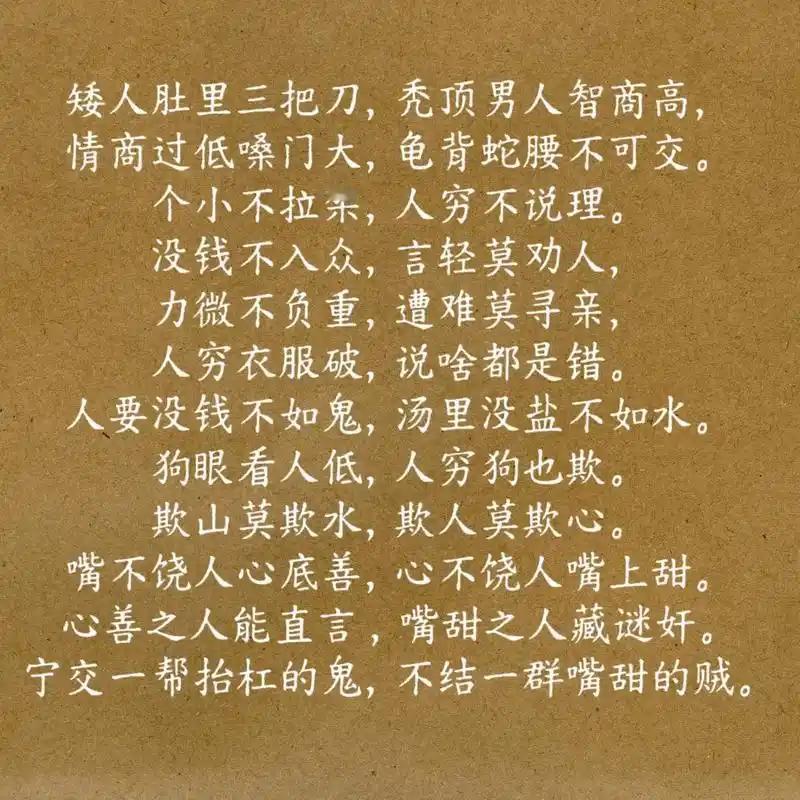 矮人肚里三把刀，秃顶男人智商高，
情商过低嗓门大，龟背蛇腰不可交。
个小不拉架，人穷不说理。
没钱不入众，言轻莫劝人，
力微不负重，遭难莫寻亲，
人穷衣服破，说啥都是错。
人要没钱不如鬼，汤里没盐不如水。
狗眼看人低，人穷狗也欺。
欺山莫欺水，欺人莫欺心。
嘴不饶人心底善，心不饶人嘴上甜。
心善之人能直言，嘴甜之人藏谜奸。
宁交一帮抬杠的鬼，不结一群嘴甜的贼。